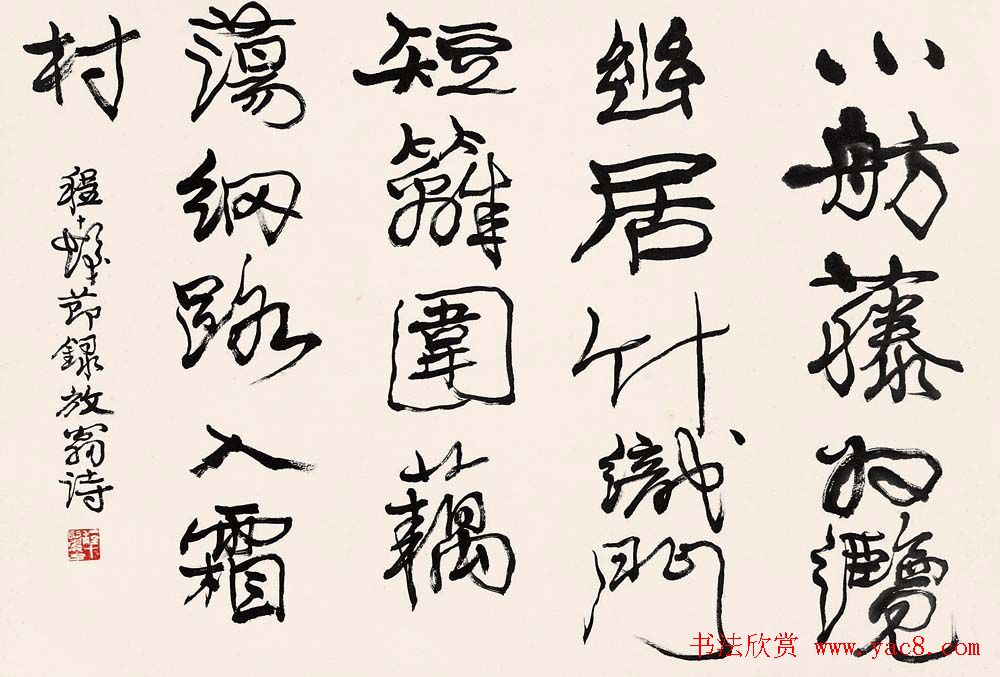 小舫藤为纜
幽居竹織門
短籬圍藕
蕩細路入霜
村
程十髮節録放翁詩
书法欣赏 www.yac8.com